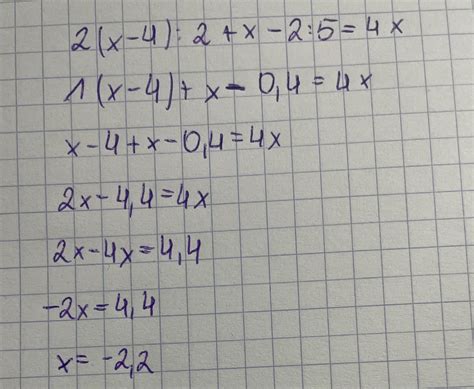 2(x-4):2+x-2:5=4x
1(x-4)+x-0,4=4x
x-4+x-0,4=4x
2x-4,4=4x
2x-4x=4,4
-2x=4,4
x=-2,2